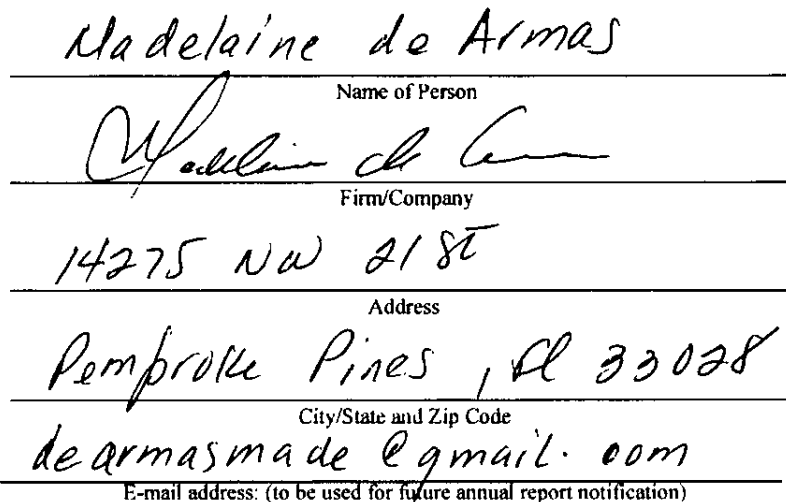 Madelaine de Armas
Name of Person
Madelaine de Armas
Firm/Company
14275 NW 21 St
Address
Pembroke Pines, Fl 33028
City/State and Zip Code
dearmasmade@gmail.com
E-mail address: (to be used for future annual report notification)